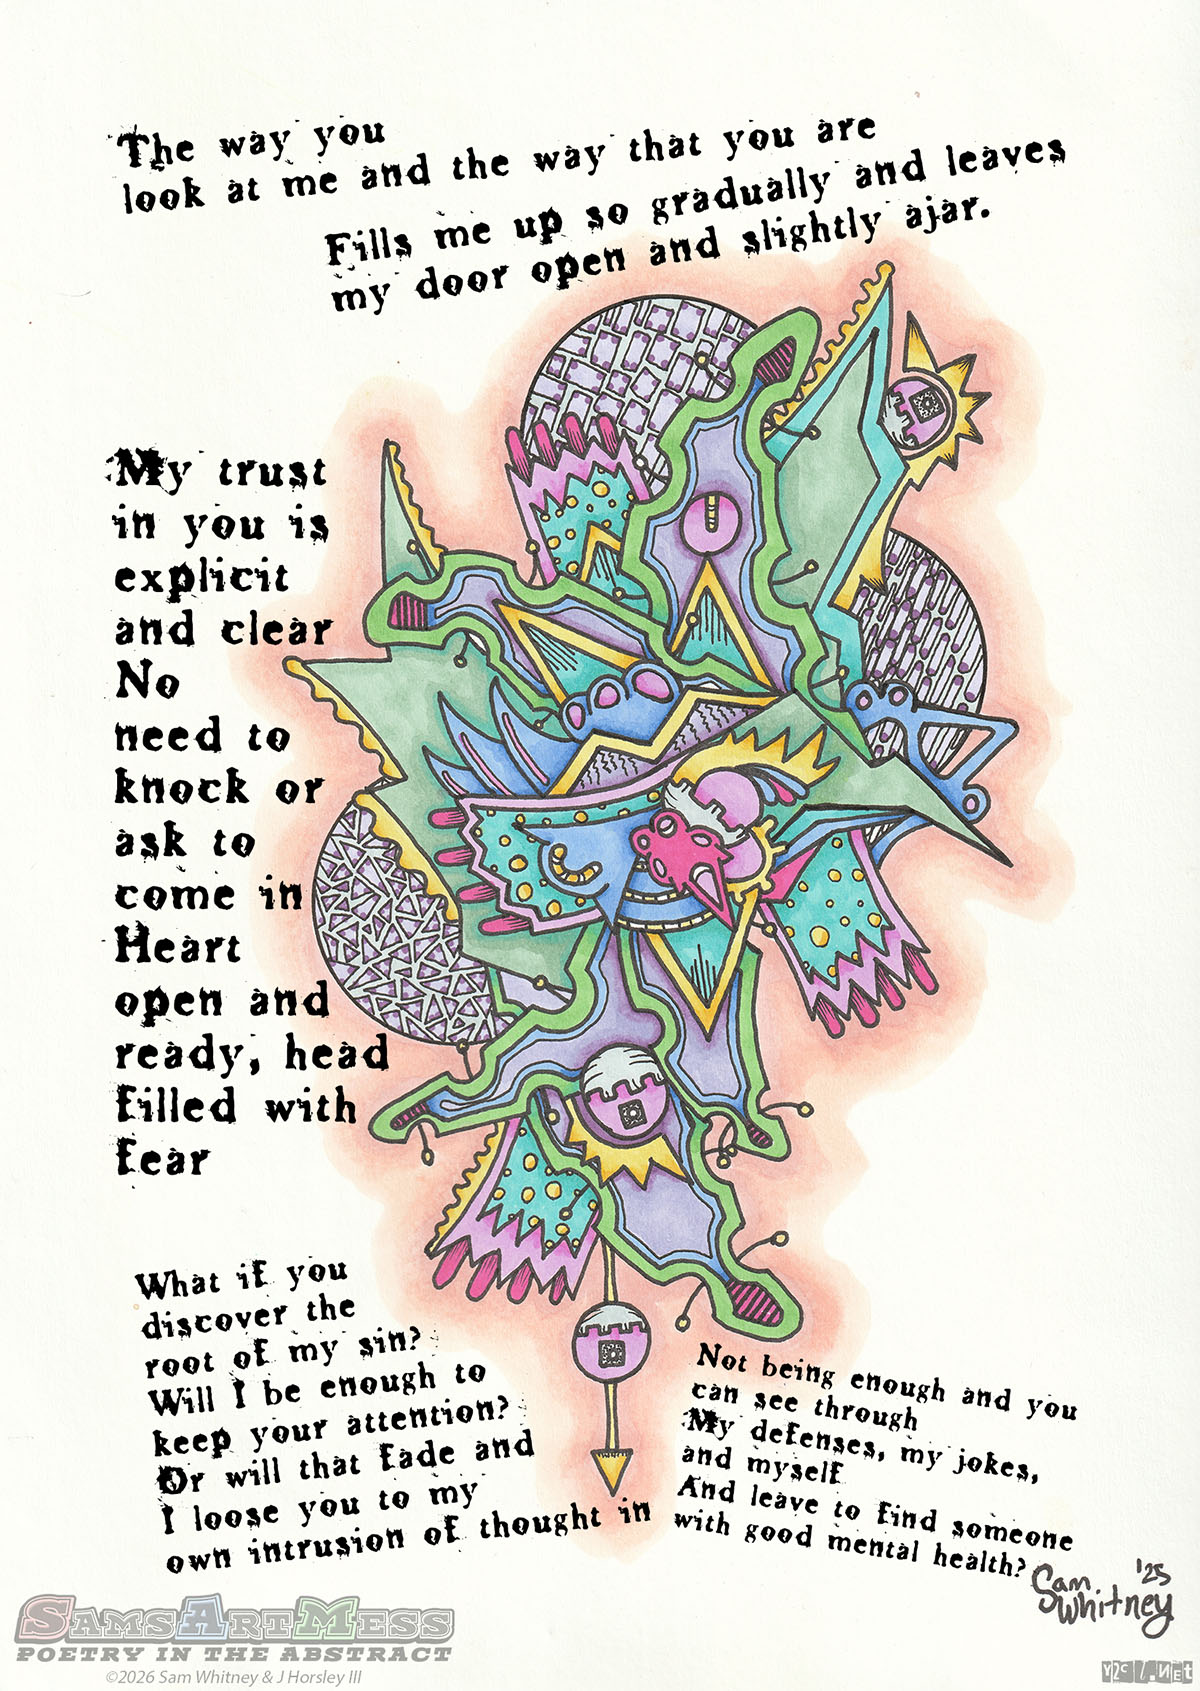 The way you
look at me and the way that you are
Fills me up so gradually and leaves
my door open and slightly ajar.
My trust
in you is
explicit
and clear
No
need to
knock or
ask to
come in
Heart
open and
ready, head
filled with
fear
What if you
discover the
root of my sin?
Will I be enough to
keep your attention?
Or will that fade and
I loose you to my
own intrusion of thought in
Not being enough and you
can see through
My defenses, my jokes,
and myself
And leave to find someone
with good mental health?
Sam '25
Whitney
SamsArtMess
Poetry in the Abstract
©2026 Sam Whitney & J Horsley III
Y2cl.Net